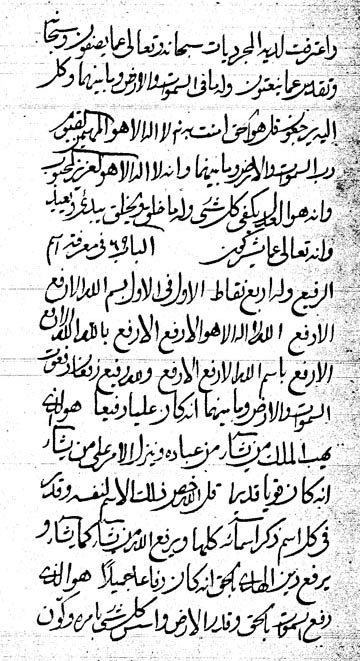 واعترفت لديه المجرديات سبحانه وتعالى عما يصفون وسبحانه
وتقدير عما ينعتون وله ما في السموات والارض وما بينهما وكل
اليه يرجعون قل هو الحق امنت به لا اله الا هو المهيمن القيوم
رب السموات والارض وما بينهما وانه لا اله الا هو العزيز المحبوب
وانه هو يكفي كل شيء وله ما خلق ويخلق يبدء ثم يعيد
وانه تعالى عما يشركون الباب في معرفة اسم
الرفيع وله اربع نقاط الاول في الاول بسم الله الارفع
الارفع الله لا اله الا هو الارفع الارفع بالله الله الارفع
الارفع باسم الله الارفع الارفع ولله رفيع
السموات والارض وما بينهما انه كان عليا رفيعا هو الذي
يهب الملك من يشاء من عباده وينزل الامر على من يشاء
انه كان قويا قديرا قل الله خص ذلك الاسم لنفسه وقدر
في كل اسم ذكر اسمائه كلها ويرفع الله من يشاء كما يشاء و
يرفع دين الهدى بالحق انه كان رفاعا جميلا هو الذي
رفع السموات بالحق وقدر الارض واسس كل شيء بامره وكون